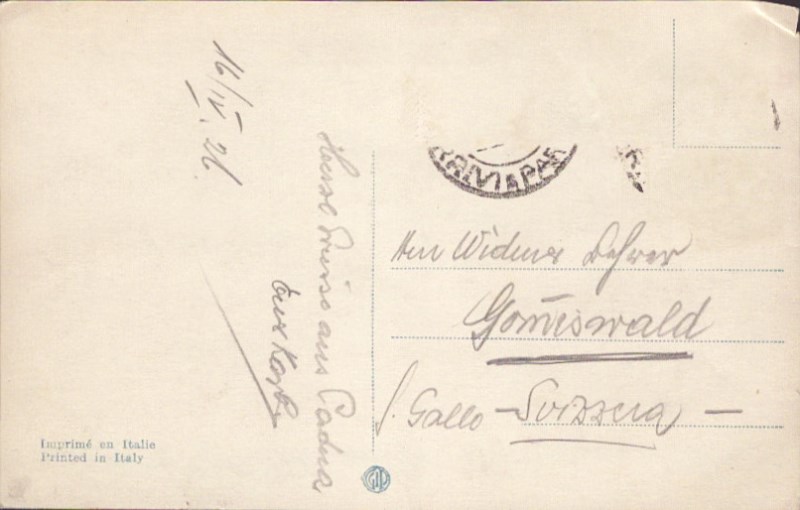 16/IV. 26.
Herzl. Grüsse aus Padua
Eur
RRIVI & PAR
Herr Widmer Lehrer
Gom̄iswald
S. Gallo - Svizzera -
Imprimé en Italie
Printed in Italy